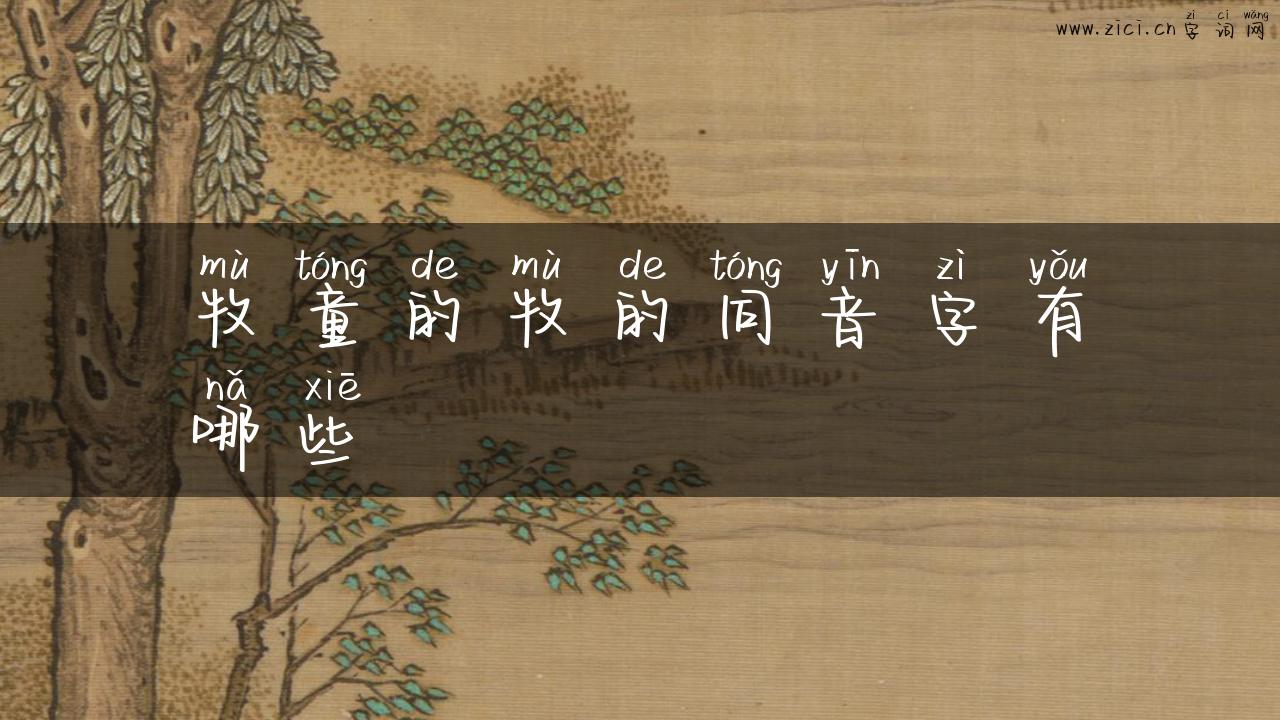 zì cí wǎng
www.zici.cn 字词网
mù tóng de mù de tóng yīn zì yǒu
牧童的牧的同音字有
nǎ xiē
哪些